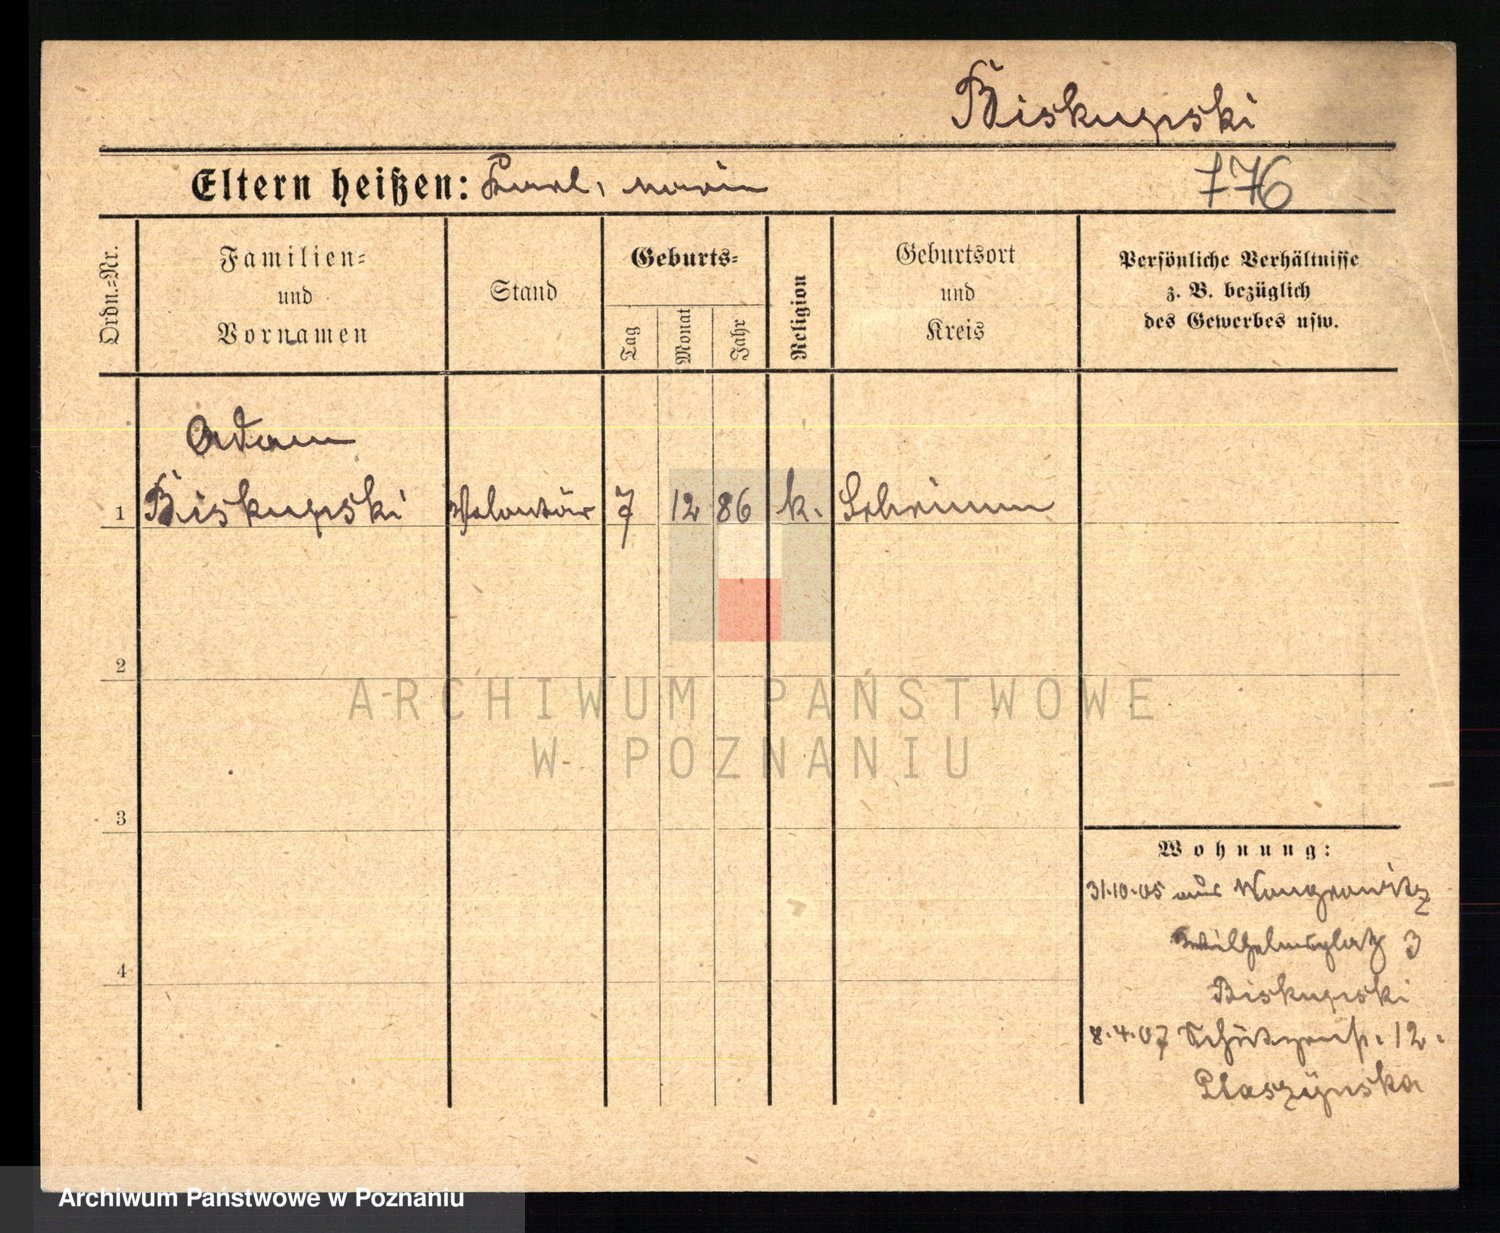 Biskupski
Eltern heißen: Karl, Marie
776
Ordn.=Nr.
Familien=
und
Vornamen
Stand
Geburts=
Tag
Monat
Jahr
Religion
Geburtsort
und
Kreis
Persönliche Verhältnisse
z. B. bezüglich
des Gewerbes usw.
Adam
1 Biskupski Volontär 7 12 86 k. Schrimm
2
ARCHIWUM PAŃSTWOWE
W POZNANIU
3
Wohnung:
31.10.05 aus Wongrowitz
Wilhelmsplatz 3
Biskupski
4
8.4.07 Schützenstr. 12.
Plaszynska
Archiwum Państwowe w Poznaniu